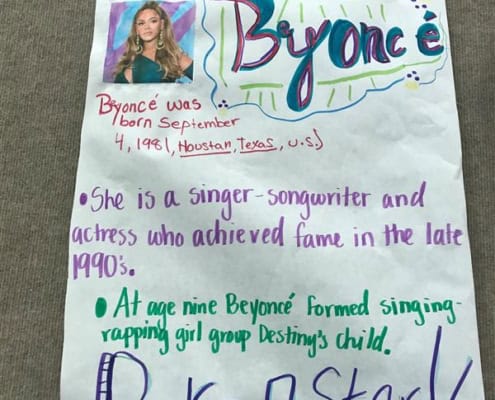 Beyoncé
Beyoncé was
born September
4, 1981, Houstan, Texas, U.S.)
•She is a singer-songwriter and
actress who achieved fame in the late
1990's.
• At age nine Beyoncé formed singing-
rapping girl group Destiny's child.